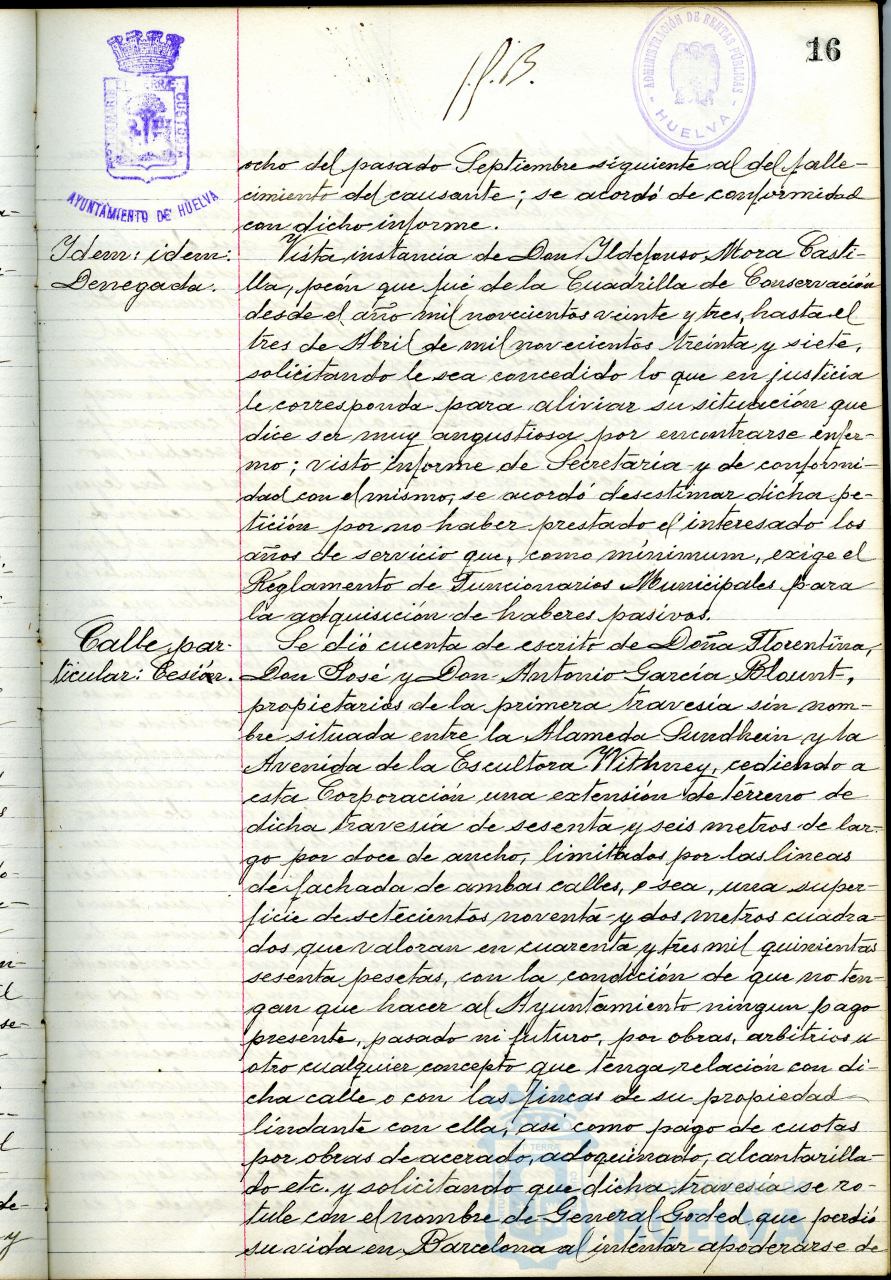 16
AYUNTAMIENTO DE HUELVA
ADMINISTRACIÓN DE RENTAS PÚBLICAS
HUELVA
ocho del pasado Septiembre siguiente al del falle-
cimiento del causante; se acordó de conformidad
con dicho informe.
Idem: idem:
Denegada.
Vista instancia de Don Ildefonso Mora Casti-
lla, peón que fué de la Cuadrilla de Conservación
desde el año mil novecientos veinte y tres, hasta el
tres de Abril de mil novecientos treinta y siete,
solicitando le sea concedido lo que en justicia
le corresponda para aliviar su situación que
dice ser muy angustiosa por encontrarse enfer-
mo; visto informe de Secretaría y de conformi-
dad con el mismo, se acordó desestimar dicha pe-
tición por no haber prestado el interesado los
años de servicio que, como mínimum, exige el
Reglamento de Funcionarios Municipales para
la adquisición de haberes pasivos.
Calle par-
ticular: Cesión.
Se dió cuenta de escrito de Doña Florentina,
Don José y Don Antonio García Blount,
propietarios de la primera travesía sin nom-
bre situada entre la Alameda Sundhein y la
Avenida de la Escultora Withney, cediendo a
esta Corporación una extensión de térreno de
dicha travesía de sesenta y seis metros de lar-
go por doce de ancho, limitados por las lineas
de fachada de ambas calles, o sea, una super-
ficie de setecientos noventa y dos metros cuadra-
dos que valoran en cuarenta y tres mil quinientas
sesenta pesetas, con la condición de que no ten-
gan que hacer al Ayuntamiento ningun pago
presente, pasado ni futuro, por obras, arbitrios u
otro cualquier concepto que tenga relación con di-
cha calle o con las fincas de su propiedad
lindante con ella, asi como pago de cuotas
por obras de acerado, adoquinado, alcantarilla-
do etc. y solicitando que dicha travesía se ro-
tule con el nombre de General Goded que perdió
su vida en Barcelona al intentar apoderarse de
HUELVA